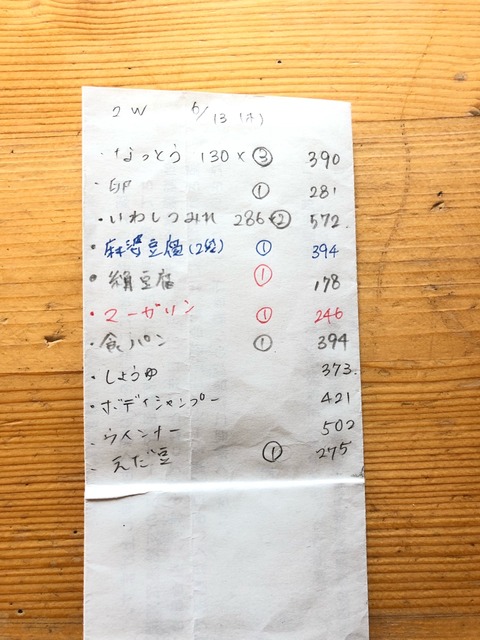 2W 6/13 (木)
・なっとう 130×③ 390
・卵 ① 281
・いわしつみれ 286×② 572.
・麻婆豆腐(2袋) ① 394
・絹豆腐 ① 178
・マーガリン ① 246
・食パン ① 394
・しょうゆ 373.
・ボディシャンプー 421
・ウインナー 502
・えだ豆 ① 275